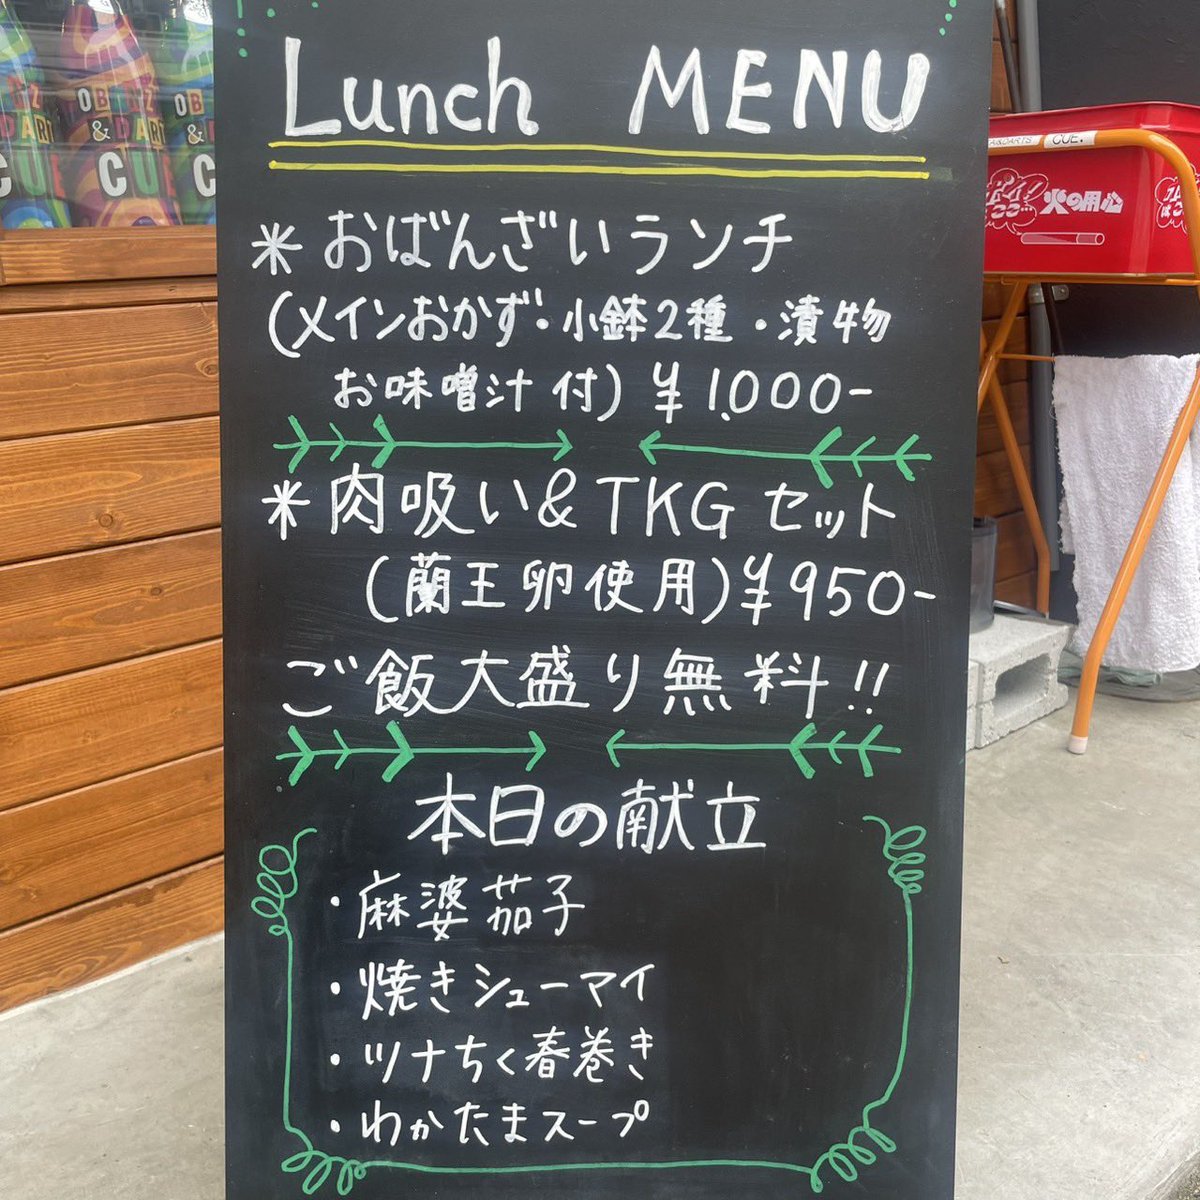 Lunch MENU
＊おばんざいランチ
(メインおかず・小鉢2種・漬物
お味噌汁付) ¥1,000-
＊肉吸い&TKGセット
(蘭王卵使用)¥950-
ご飯大盛り無料!!
本日の献立
・麻婆茄子
・焼きシューマイ
・ツナちく春巻き
・わかたまスープ
OB
&
CUE
OB
&
DART
CUE
OB
&
C
CUE.
火の用心
ポイ!
はここ…